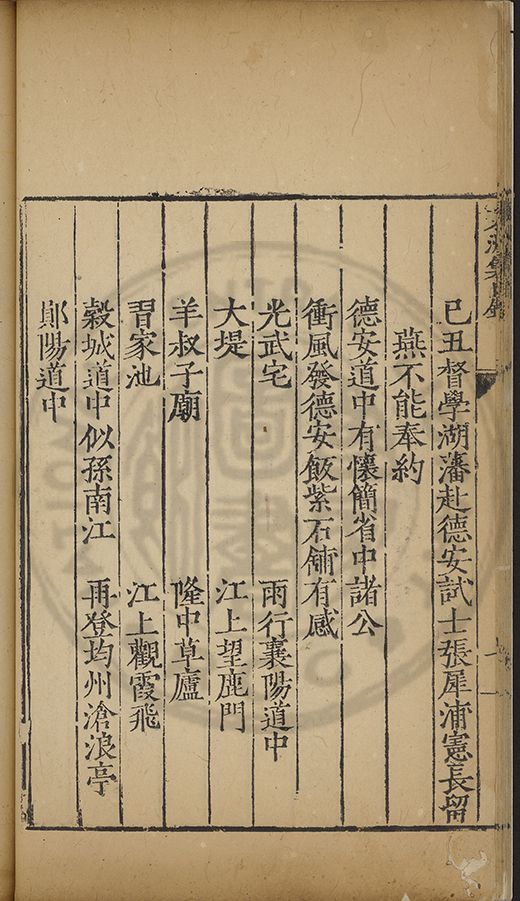 己丑督學湖藩赴德安試士張犀浦憲長留
燕不能奉約
德安道中有懷簡省中諸公
衝風發德安飯紫石舖有感
光武宅　雨行襄陽道中
大堤　江上望鹿門
羊叔子廟　隆中草廬
習家池　江上觀霞飛
榖城道中似孫南江　再登均州滄浪亭
鄖陽道中